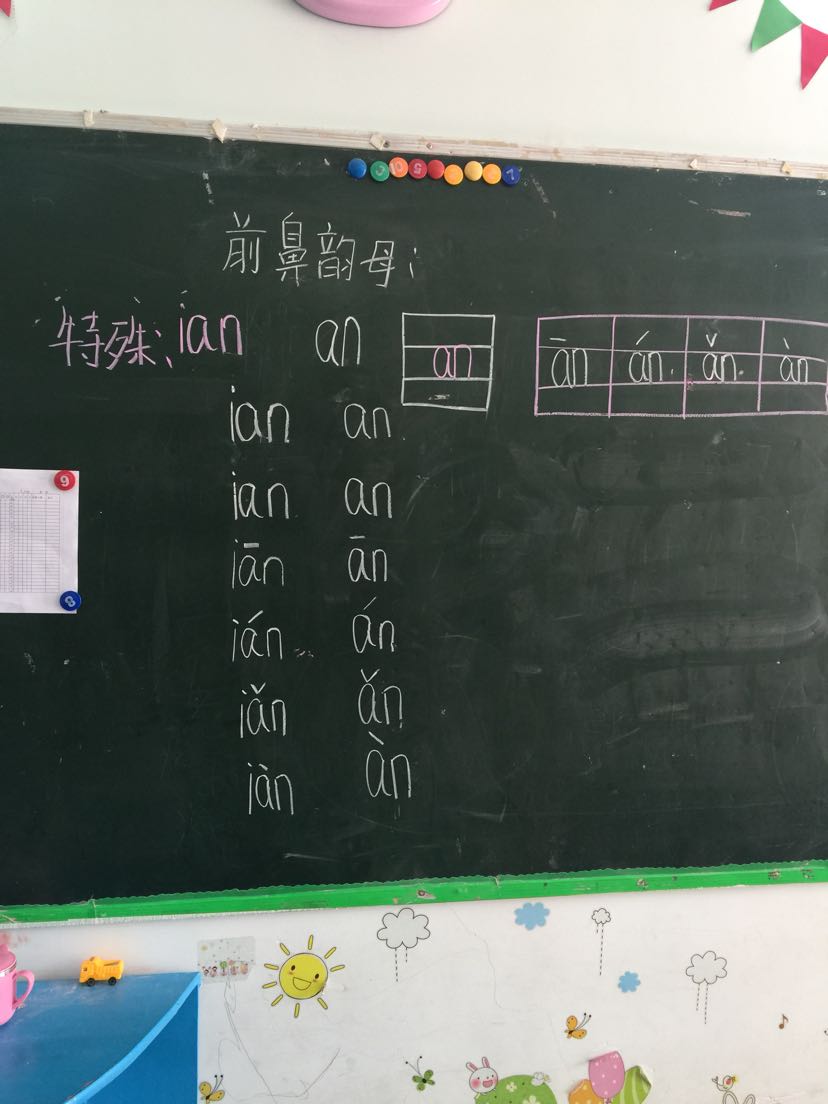 前鼻韵母:
特殊: ian an an ān án ǎn àn
ian an
ian an
iān ān
ián án
iǎn ǎn
iàn àn
9
8